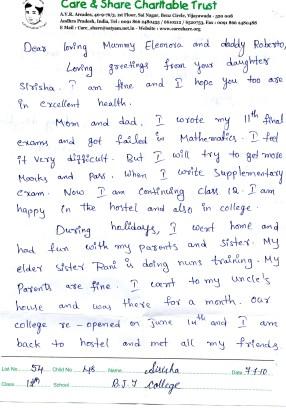 Care & Share Charitable Trust
A.T.R. Arcades, 40-9-76/3, 1st Floor, Sai Nagar, Benz Circle, Vijayawada - 520 008
Andhra Pradesh, India,
E Mail : Website : www.careshare.org
Dear loving Mummy Eleonora and daddy Roberto,
Loving greetings from your daughter
Sirisha. I am fine and I hope you too are
in excellent health.
Mom and dad, I wrote my 11th final
exams and got failed in Mathematics. I feel
it very difficult. But I will try to get more
Marks and pass. When I write Supplementary
exam. Now I am continuing class 12. I am
happy in the hostel and also in college.
During holidays, I went home and
had fun with my parents and sister. My
elder sister Rani is doing nuns training. My
parents are fine. I went to my uncle's
house and was there for a month. Our
college re-opened on June 14th and I am
back to hostel and met all my friends.
List No 54 Child No 48 Name Sirisha Date 7.7.10
Class 12th School R.J.Y College